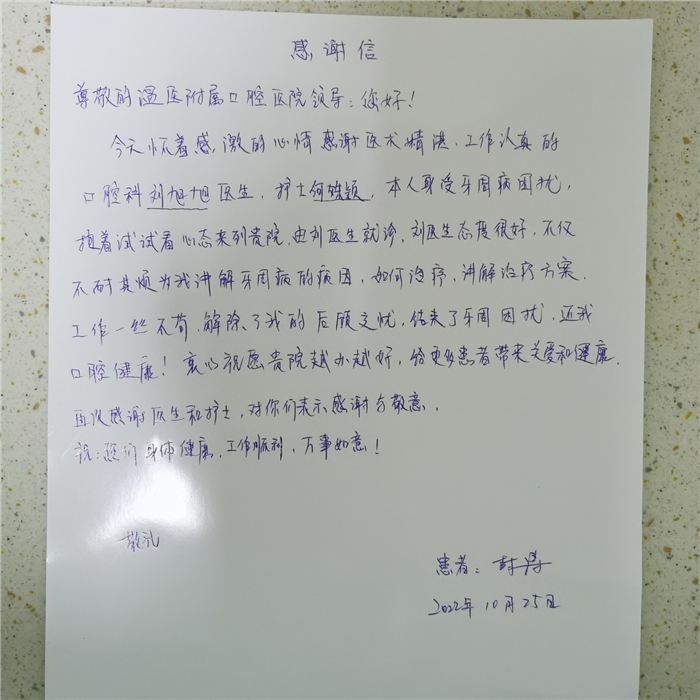 感谢信
尊敬的温医附属口腔医院领导：您好！
今天怀着感激的心情感谢医术精湛、工作认真的
口腔科刘旭旭医生，护士何晓颖，本人身受牙周病困扰，
抱着试试看心态来到贵院，由刘医生就诊，刘医生态度很好，不仅
不耐其烦为我讲解牙周病的病因，如何治疗，讲解治疗方案，
工作一丝不苟，解除了我的后顾之忧，结束了牙周困扰，还我
口腔健康！衷心祝愿贵院越办越好，给更多患者带来关爱和健康.
再次感谢医生和护士，对你们表示感谢与敬意，
祝：您们身体健康，工作顺利，万事如意！
敬礼
患者：
2022年10月25日